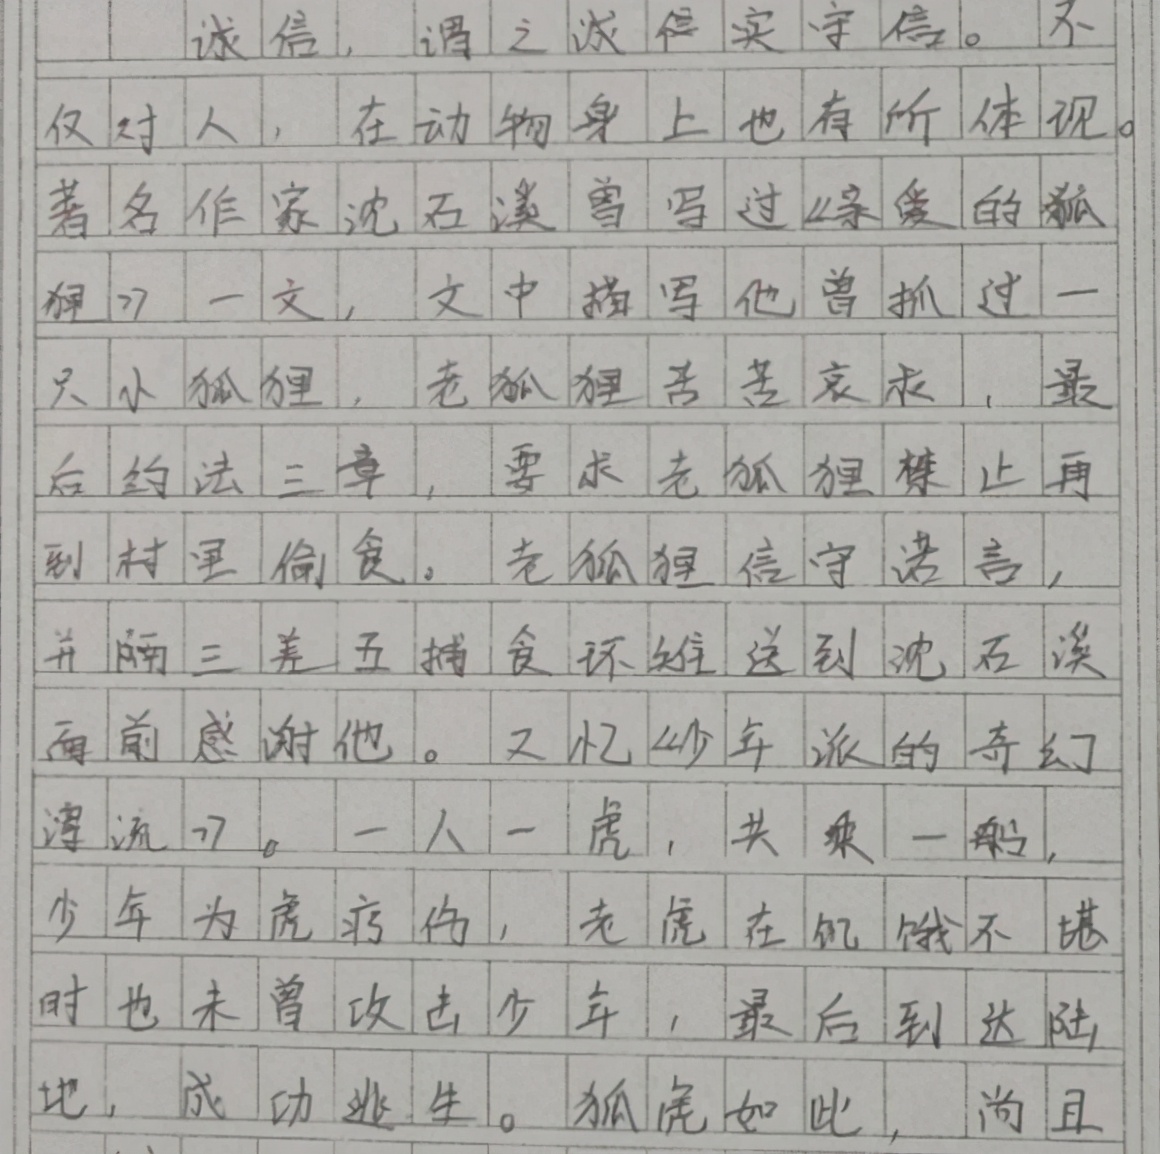 诚信，谓之诚信实守信。不
仅对人，在动物身上也有所体现。
著名作家沈石溪曾写过《亲爱的狐
狸》一文，文中描写他曾抓过一
只小狐狸，老狐狸苦苦哀求，最
后约法三章，要求老狐狸禁止再
到村里偷食。老狐狸信守诺言，
并隔三差五捕食环雉送到沈石溪
面前感谢他。又忆《少年派的奇幻
漂流》。一人一虎，共乘一船，
少年为虎疗伤，老虎在饥饿不堪
时也未曾攻击少年，最后到达陆
地，成功逃生。狐虎如此，尚且